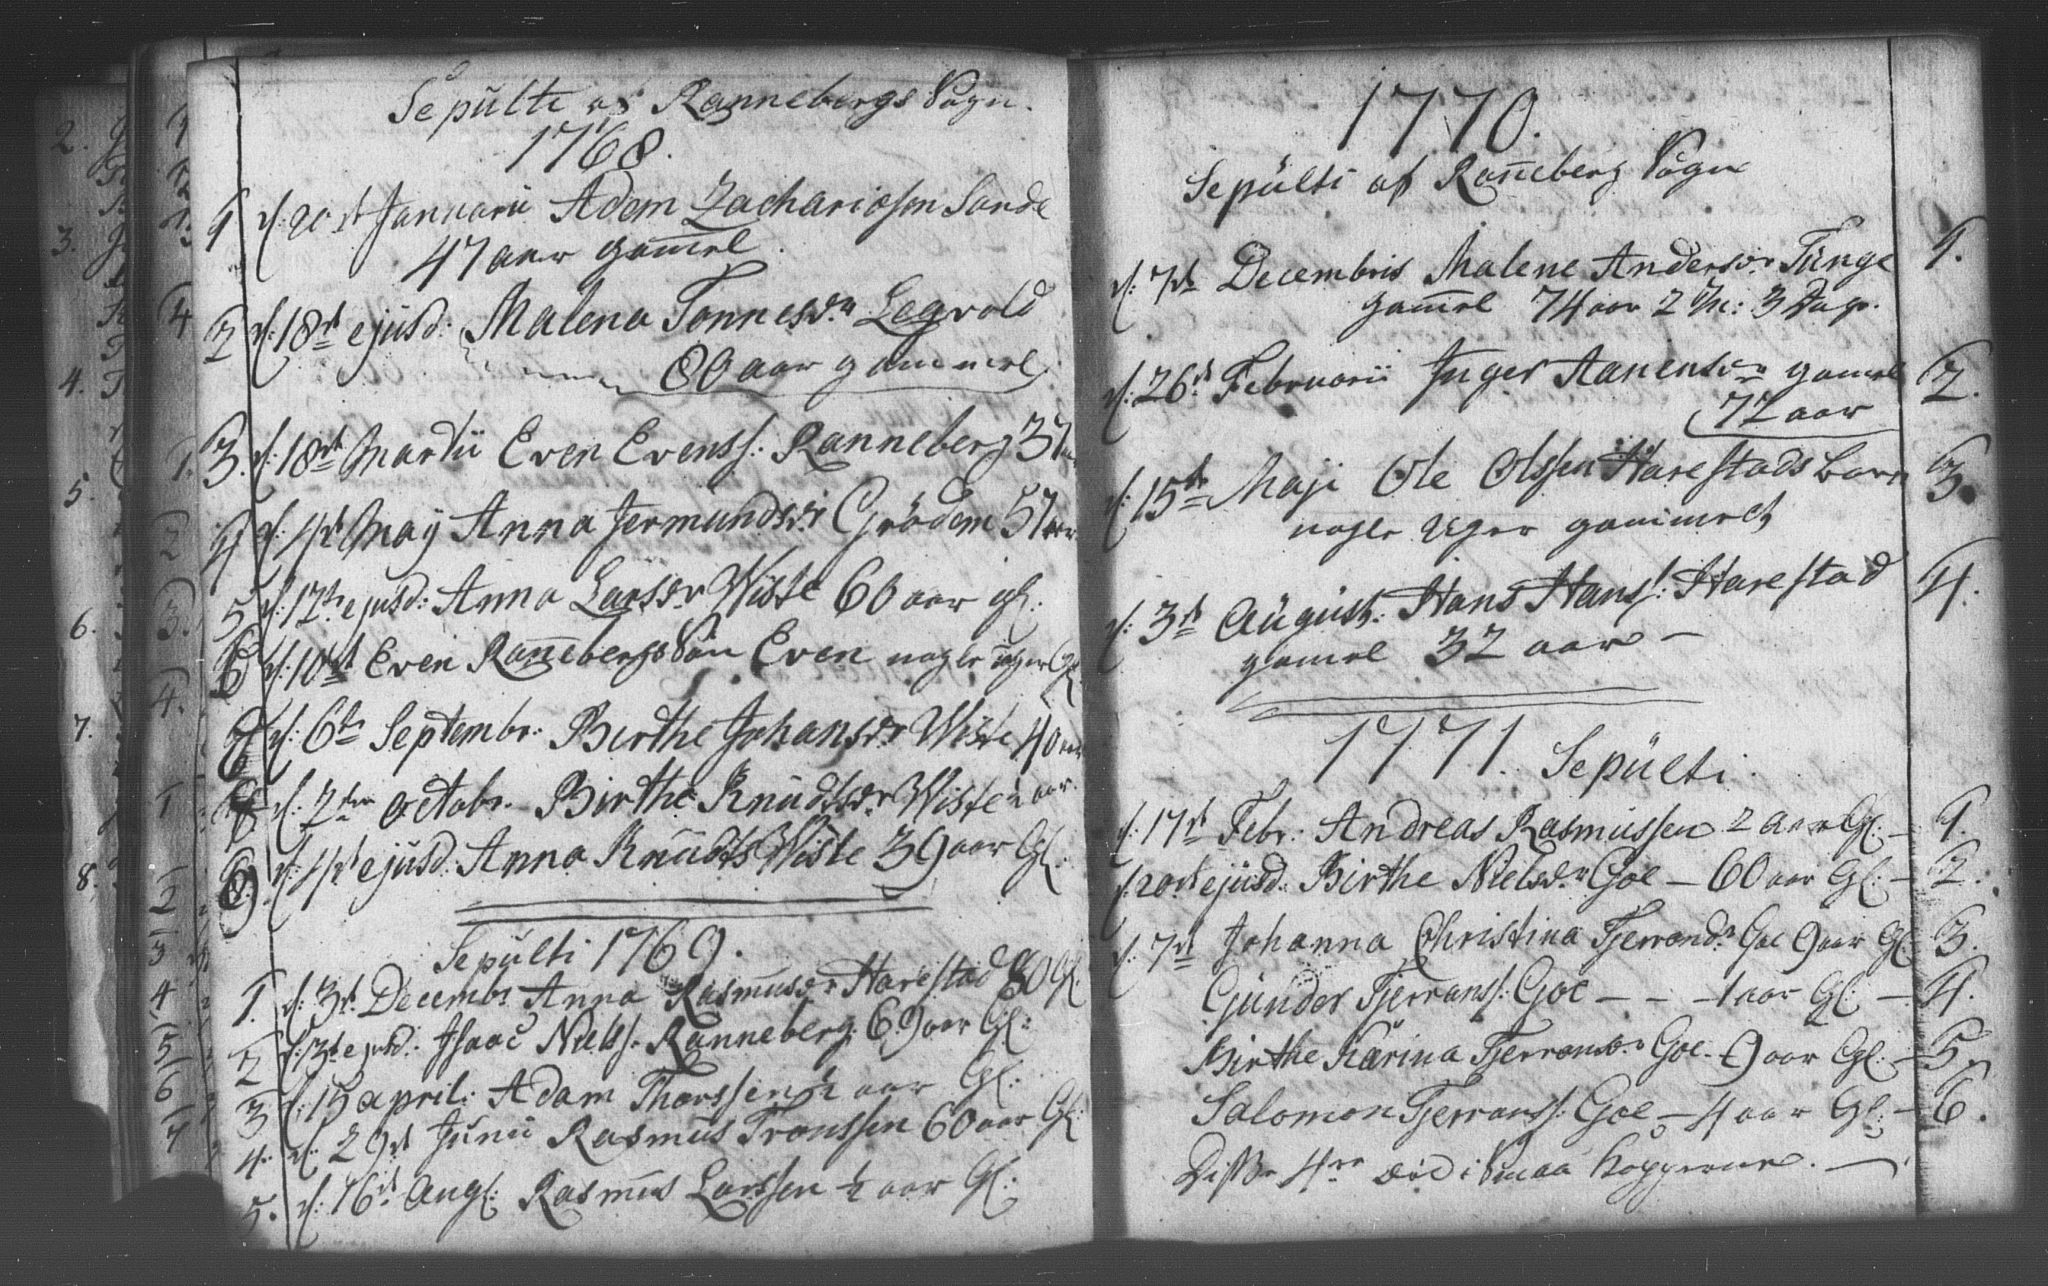 Sepulti af Rannebergs Sogn.
1768.
1 d: 20de Januarii Adam Zachariasen Sande
47 aar gam̅el.
2 d: 18de ejusd: Malena Tonnesdr Legvold
80 aar gammel
3. d: 18de Martii Even Evenss: Ranneberg 37 aar
4 d: 4de May Anna Jermundsdr Grödem 57 aar
5 d: 17de ejusd: Anna Larsdr Wiste 60 aar gl:
6 d: 10de Even Ran̅ebergs Sön Even nogle uger Gl:
7 d: 6te Septembr: Birthe Johansdr Wiste 40 aar
8 d: 2den octobr. Birthe Knudsdr Wiste aar.
9. d: 4de ejusd. Anna Knudsdr Wiste 39 aar Gl:
Sepulti 1769.
1. d: 3de Decembr Anna Rasmusdr Harestad 80 Gl:
2 d: 3de ejusd: Isaac Nielss. Ranneberg 69 aar Gl:
3 d: 15 april: Adam Thorssen ½ aar Gl:
4. d: 29de Junii Rasmus Tronssen 60 aar Gl:
5. d: 16de Augl: Rasmus Larssen ½ aar Gl:
1770.
Sepulti af Ran̅eberg Sogn
d: 7de Decembris Malene Andersdr Tunge 1.
gam̅el 74 aar 2 M: 3 Dage.
d: 26de Februarii Inger Aanensdr gamel 2.
72 aar
d: 15de Maji Ole Olssen Harestads barn 3.
nogle Uger gammelt
d: 3de August: Hans Hanss: Harestad 4.
gamel 32 aar —
1771. Sepulti.
d: 17de Febr: Andreas Rasmussen 2 aar Gl: — 1.
d: 20de ejusd: Birthe Nielsdr Goe — 60 aar Gl: — 2.
d: 7de Johanna Christina Tjerrandr Goe 9 aar Gl: 3.
Gunder Tjerranss: Goe — - - 1 aar Gl: — 4.
Birthe Karina Tjerransdr Goe — 9 aar Gl: — 5.
Salomon Tjerranss: Goe — 4 aar Gl: — 6.
Disse 4re död i Smaa Kopperne. —